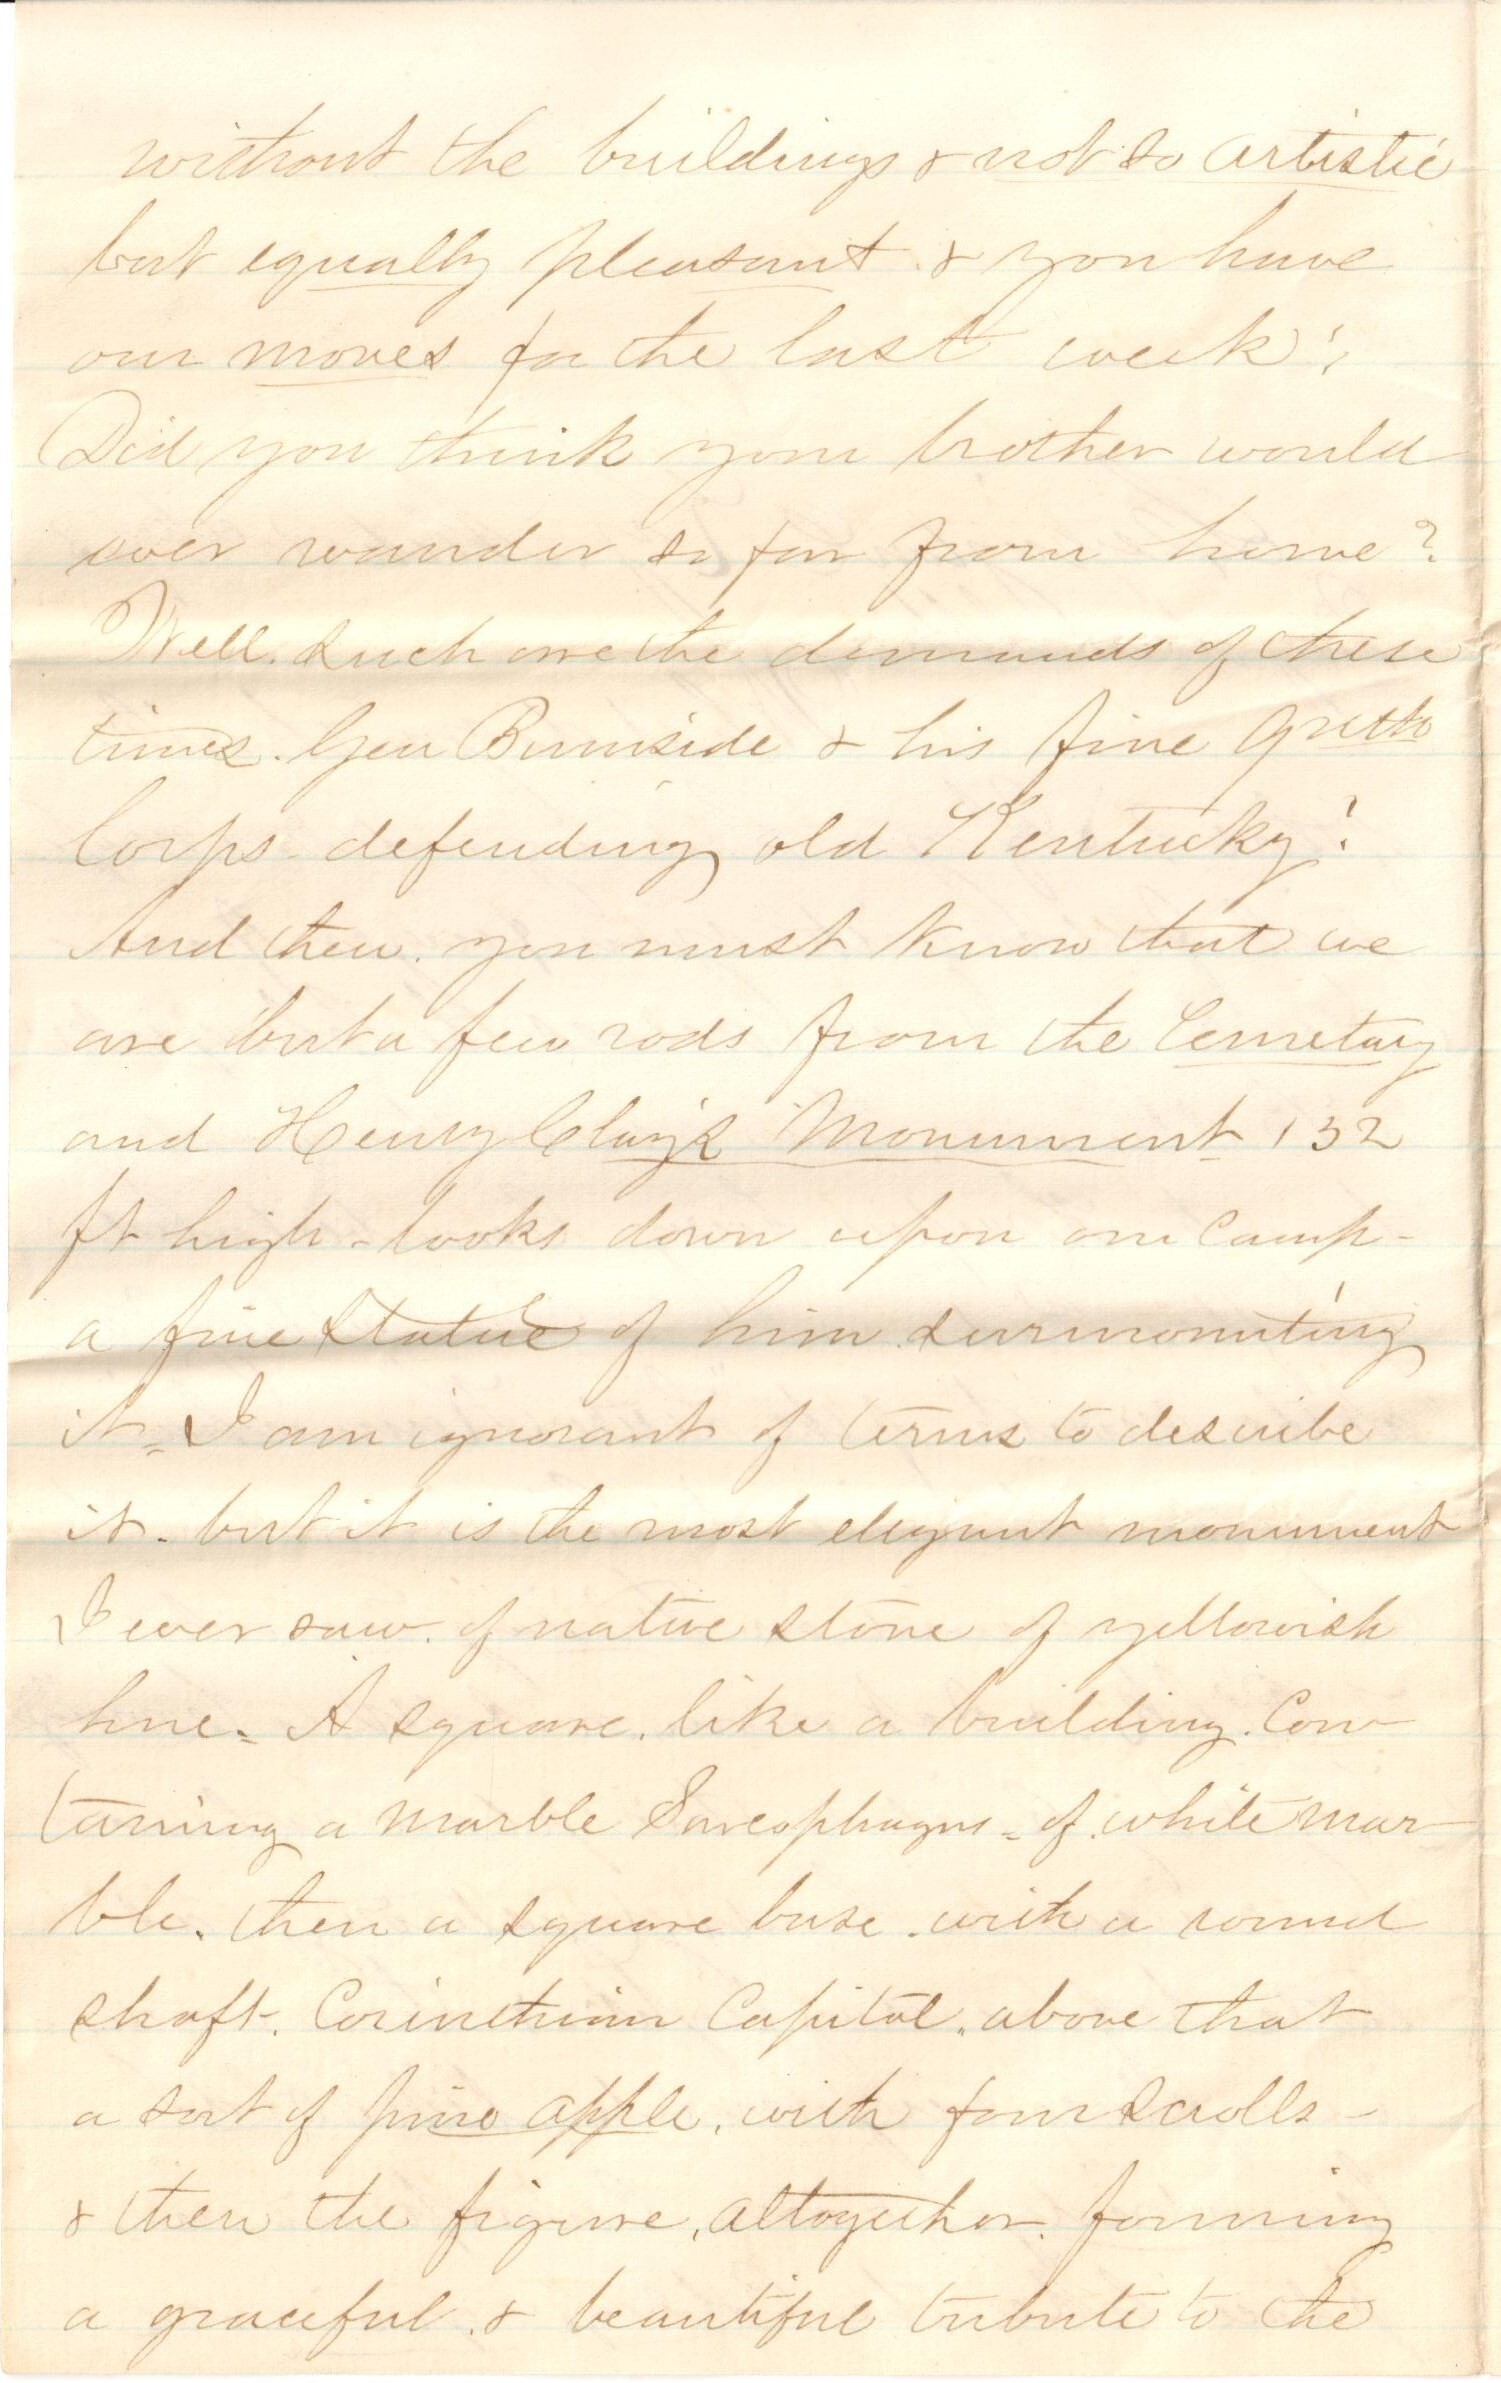 without the buildings & not so artistic
but equally pleasant & you have
our moves for the last week!
Did you think your brother would
ever wander so far from home?
Well. Such are the demands of these
times. Gen Burnside & his fine 9th
Corps - defending old Kentucky!
And then. you must know that we
are but a few rods from the Cemetary
and Henry Clay's Monument 132
ft high - looks down upon our Camp -
a fine Statue of him surmounting
it - I am ignorant of terms to describe
it - but it is the most elegant monument
I ever saw. of native stone of yellowish
hue - A square. like a building. Con-
taining a marble Sarcophagus - of white mar-
ble. then a square base. with a round
shaft. Corinthian Capital, above that
a sort of pine apple, with four Scrolls -
& then the figure, altogether. forming
a graceful & beautiful tribute to the